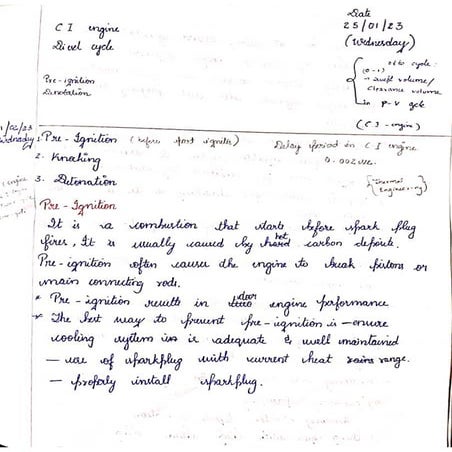 C I engine
Diesel cycle
Date
25/01/23
(Wednesday)
Pre-ignition
Detotation
otto cycle:
(0-1)
swept volume/
Clearance volume
in P-V
(C I - engine)
1/02/23
Wednesday
1. Pre-Ignition (before spark ignites) Delay period in C I engine
2. Knocking 0.002
3. Detonation (Thermal Engineering)
Pre-Ignition
It is a combustion that starts before spark plug
fires, It is usually caused by hot carbon deposits.
Pre-ignition often cause the engine to break pistons or
main connecting rods.
* Pre-ignition results in door engine performance
* The best way to prevent pre-ignition is - ensure
cooling system is adequate & well maintained
- use of sparkplug with current heat range.
- properly install sparkplug.